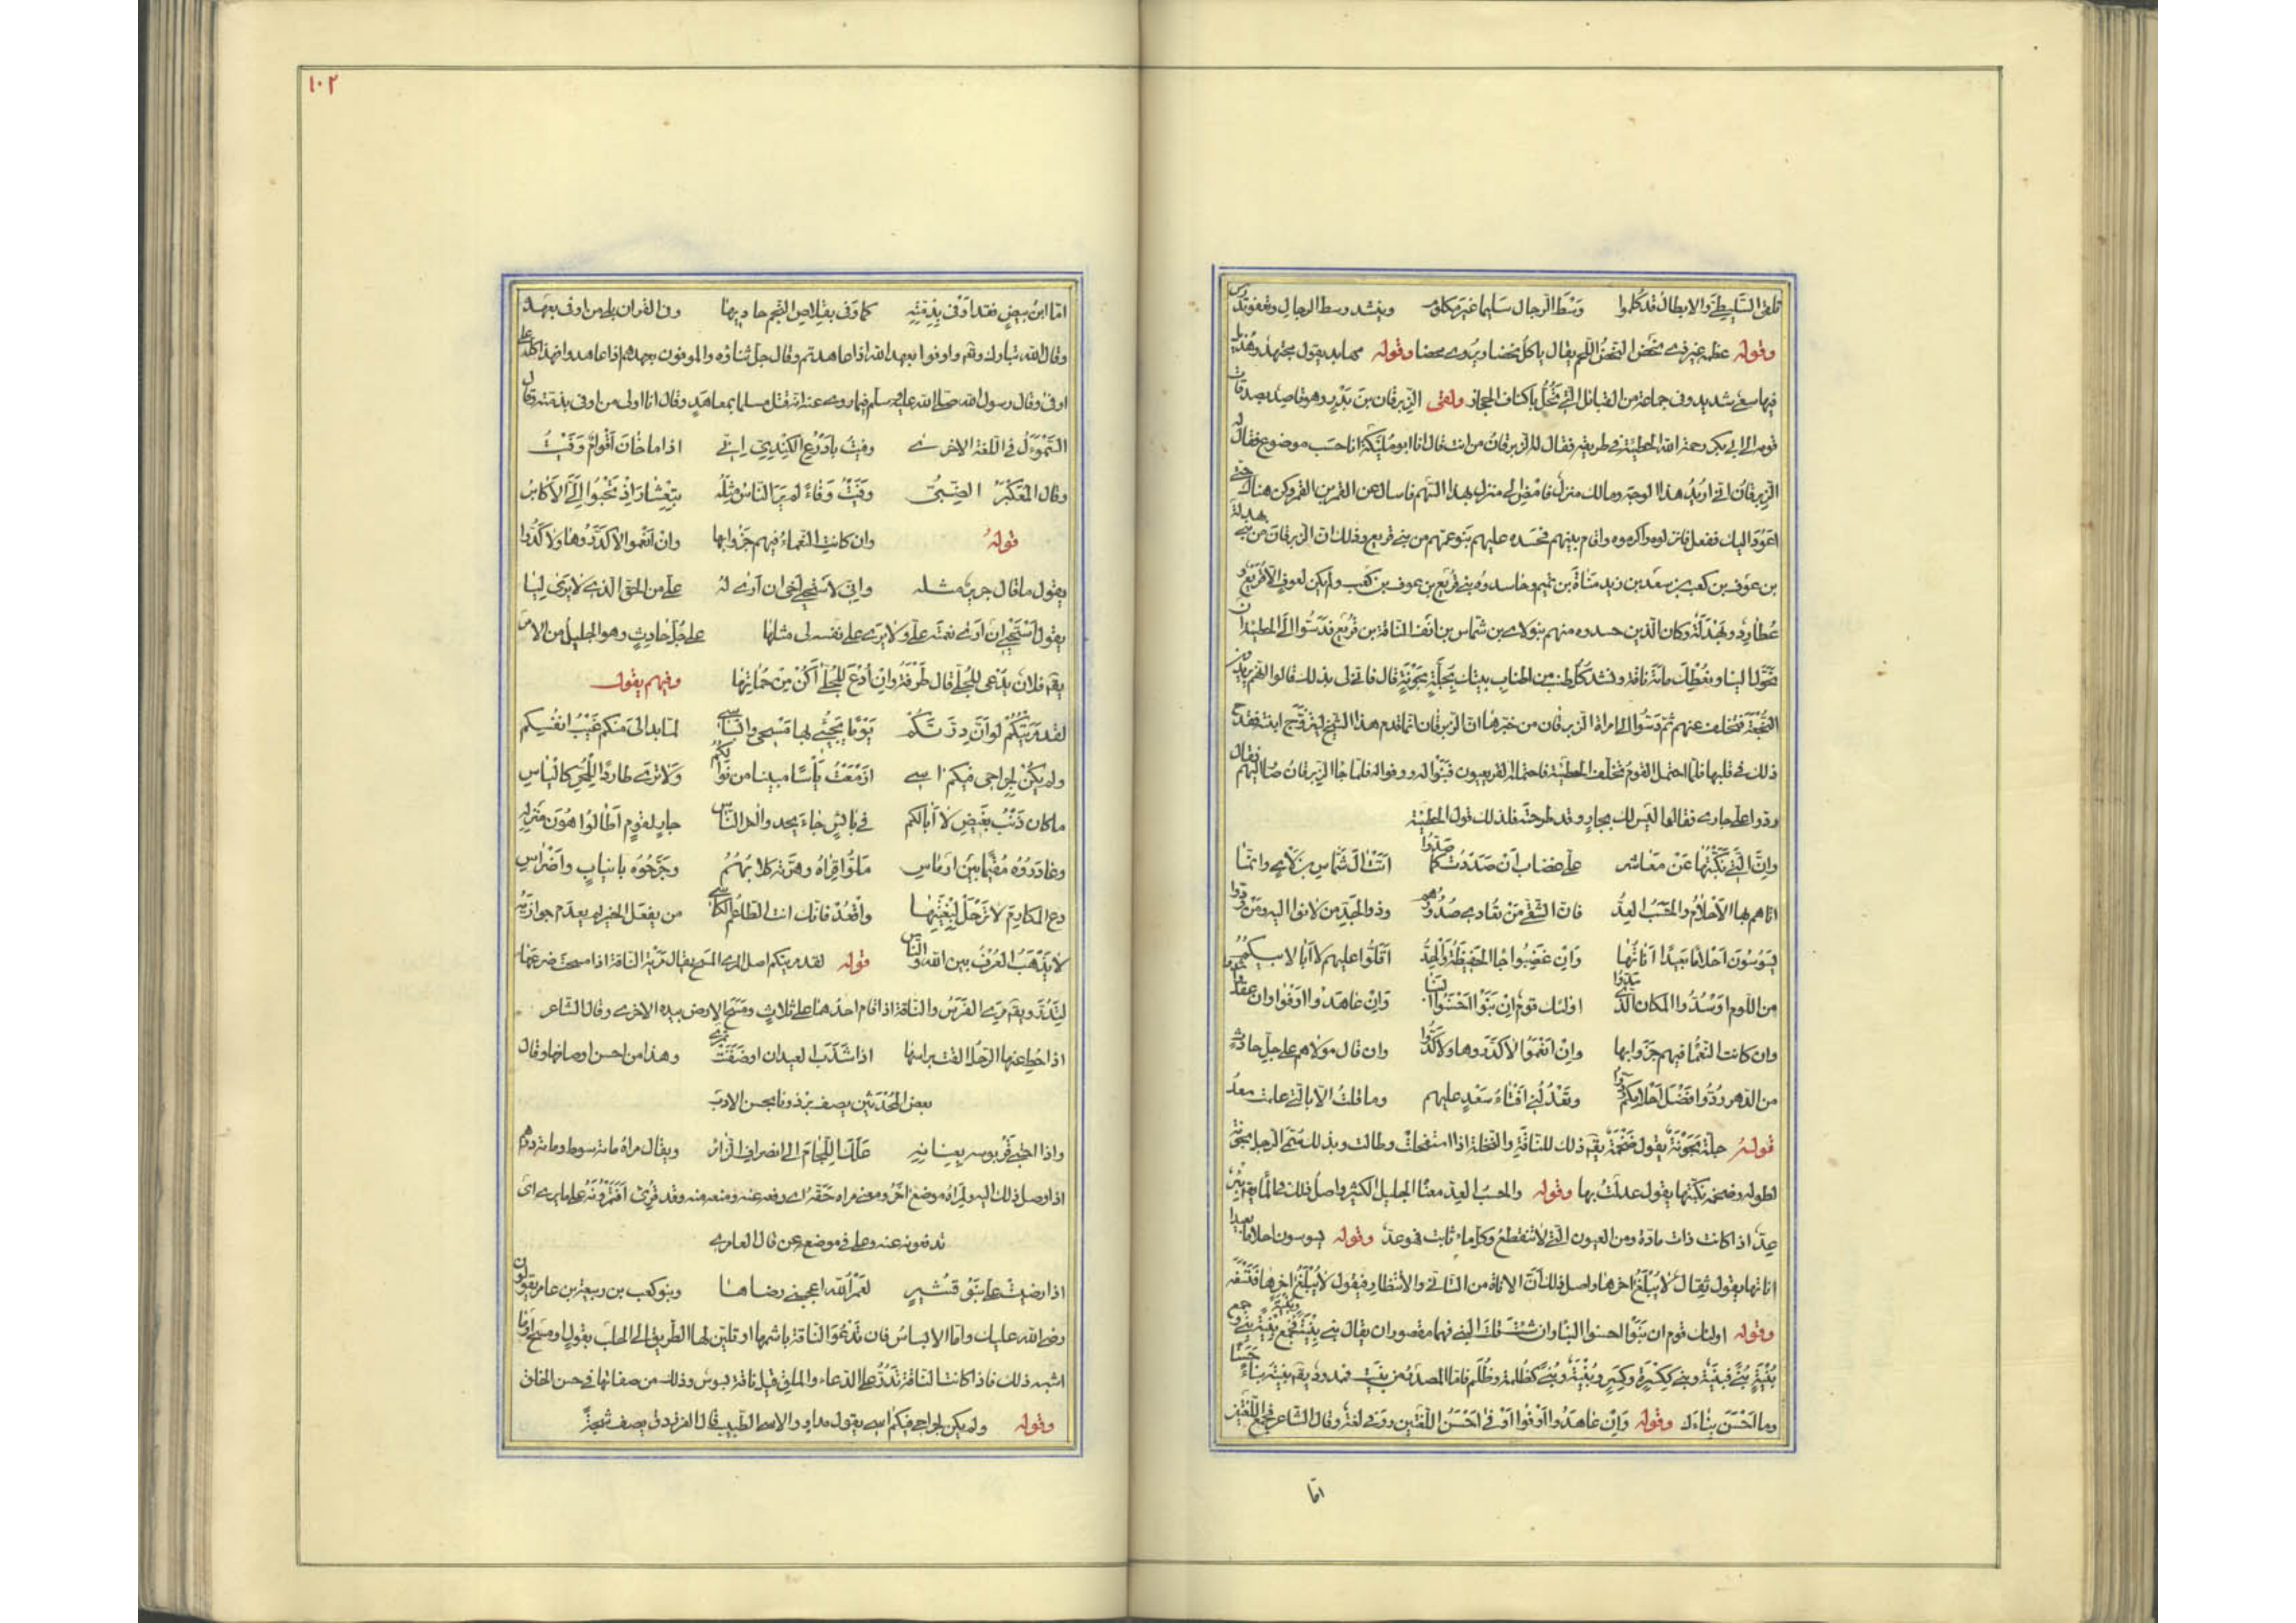 تلقى السليطى والابطال قد كلموا وسط الرجال سليما غير مكلوم وينشد وسط الرجال
وقوله عظم غير ذى نحض النحض اللحم يقال ياكل نحضا ويروى محضا وقوله مجاهد يقول مجتهد
فيها سعى شديد وفى جماعة من القبائل التى تحل باكناف الحجاز ولقى الزبرقان بن بدر وهو قاصد بصدقات
قومه الى ابى بكر رحمة الله الحطيئة فى طريقه فقال له الزبرقان من انت قال انا ابو مليكة انا حسب موضوع فقال له
الزبرقان انى اريد هذا الوجه ومالك منزل فامض الى منزلى بهذا السهم فاسال عن القمر بن القمر وكن هناك حتى
اعود اليك ففعل فانزلوه واكرموه واقام بينهم فحسده عليهم بنو عمهم من بنى قريع وذلك ان الزبرقان من بنى بهدلة
بن عوف بن كعب بن سعد بن زيد مناة بن تميم وحاسدوه بنو قريع بن عوف بن كعب ولم يكن لعوف الا قريع و
عطارد وبهدلة وكان الذين حسدوه منهم بنو لاى بن شماس بن انف الناقة بن قريع فدسوا الى الحطيئة ان
تحول الينا ونعطك مائة ناقة ونشد كل طنب من اطناب بيتك بجلة بحونة قال فانى لى بذلك قالوا انهم يريدون
النجعة فتخلف عنهم ثم دسوا الى امراة الزبرقان من خبرها ان الزبرقان انما قدم هذا الشيخ ليتزوج ابنته فقدح
ذلك فى قلبها فلما احتمل القوم تخلف الحطيئة فاحتمله القريعيون فبنوا له ووفوا له فلما جاء الزبرقان صار اليهم فقال
ردوا على جارى فقالوا ليس لك بجار وقد طرحته فذلك قول الحطيئة
وان التى نكبتها عن معاشر على غضاب ان صددت كما صدوا اتت آل شماس بن لاى وانما
اتاهم بها الاحلام والحسب العد فان الشقى من تعادى صدورهم وذو الجد من لانوا اليه ومن ودوا
يسوسون احلاما بعيدا اناتها وان غضبوا جاء الحفيظة والجد اقلوا عليهم لا ابا لابيكم
من اللوم او سدوا المكان الذى سدوا اولئك قوم ان بنوا احسنوا البنا وان عاهدوا اوفوا وان عقدوا شدوا
وان كانت النعما فيهم جزوا بها وان انعموا لا كدروها ولا كدوا وان قال مولاهم على جل حادث
من الدهر ردوا فضل احلامكم ردوا وتعذلنى افناء سعد عليهم وما قلت الا بالتى علمت سعد
قوله جلة بحونة يقول ضخمة يقال ذلك للناقة والنخلة اذا استفحلت وطالت وبذلك سمى الرجل بحونة
لطوله وضخمه نكبتها يقول عدلت بها وقوله والحسب العد معناه الجليل الكثير واصل ذلك فى الماء يقال بئر
عد اذا كانت ذات مادة ومن العيون التى لا تنقطع وكل ماء ثابت فهو عد وقوله يسوسون احلاما بعيدا
اناتها يقول ثقال لا يبلغ اخرها واصل ذلك ان الاناة من التانى والانتظار فيقول لا يبلغ اخرها
وقوله اولئك قوم ان بنوا احسنوا البنا وان شئت قلت البنى فهما مقصوران يقال بنى بنية فجمع بنية بنى وجمع
بنية بنى فبنية وبنى ككسرة وكسر وبنية وبنى كظلمة وظلم فاما المصدر من بنيت فممدود يقال بنيته بناء حسنا
وما احسن بناءك وقوله وان عاهدوا اوفوا اوفى احسن اللغتين ووفى لغة وقال الشاعر فجمع اللغتين
اما
١٠٢
اما ابن بيض فقد اوفى بذمته كما وفى بقلاص النجم حاديها وفى القران بلى من اوفى بعهده
وقال الله تبارك وتعالى واوفوا بعهد الله اذا عاهدتم وقال جل ثناؤه والموفون بعهدهم اذا عاهدوا فهذا كله على
اوفى وقال رسول الله صلى الله عليه وسلم فيما روى عنه انه قتل مسلما بمعاهد وقال انا اولى من اوفى بذمته وقال
السموءل فى اللغة الاخرى وفيت بادرع الكندى انى اذا ما خان اقوام وفيت
وقال المعكبر الضبى وفيت وفاء لم ير الناس مثله بتعشار اذ تحبوا الى الاكابر
قوله وان كانت النعماء فيهم جزوا بها وان انعموا لا كدروها ولا كدوا
يقول ما قال جرير مثله وانى لاستحيى اخى ان ارى له على من الحق الذى لا يرى ليا
يقول استحيى ان ارى نعمته على ولا يرى على نفسه لى مثلها على جل حادث وهو الجليل من الامر
يقال فلان يدعى للجلى قال طرفة وان ادع للجلى اكن من حماتها وفيهم يقول
لقد مريتكم لو ان درتكم يوما يجيء بها مسحى وابساسى لما بدا لى منكم غيب انفسكم
ولم يكن لجراحى فيكم اسى ازمعت ياسا مبينا من نوالكم ولا ترى طاردا للحر كالياس
ما كان ذنب بغيض لا ابا لكم فى بائس جاء يحدو اخر الناس جار لقوم اطالوا هون منزله
وغادروه مقيما بين ارماس ملوا قراه وهرته كلابهم وجرحوه بانياب واضراس
دع المكارم لا ترحل لبغيتها واقعد فانك انت الطاعم الكاسى من يفعل الخير لم يعدم جوازيه
لا يذهب العرف بين الله والناس قوله لقد مريتكم اصل المرى المسح يقال مريت الناقة اذا مسحت ضرعها
لتدر ويقال مرى الفرس والناقة اذا قام احدهما على ثلاث ومسح الارض بيده الاخرى وقال الشاعر
اذا حط عنها الرحل القت براسها اذا شذب العيدان او صفنت تمرى وهذا من احسن اوصافها وقال
بعض المحدثين يصف برذونا بحسن الادب
واذا احتبى قربوسه بعنانه علك اللجام الى انصراف الزائر ويقال مراه مائة سوط ومائة درهم
اذا اوصل ذلك اليه ولمراه موضع اخر ومعنى مراه حقه اى دفعه عنه ومنعه منه وقد قرئ افتمرونه على ما يرى اى
تدفعونه عنه وعلى فى موضع عن قال العامرى
اذا رضيت على بنو قشير لعمر الله اعجبنى رضاها وبنو كعب بن ربيعة بن عامر يقولون
رضى الله عليك واما الابساس فان تدعو الناقة باسمها او تلين لها الطريق الى الحلب بقول او مسح او ما
اشبه ذلك فاذا كانت الناقة تدر على الدعاء والملق قيل ناقة بسوس وذلك من صفاتها فى حسن الخلق
وقوله ولم يكن لجراحى فيكم اسى يقول مداو والاسى الطبيب قال الفرزدق يصف شجة